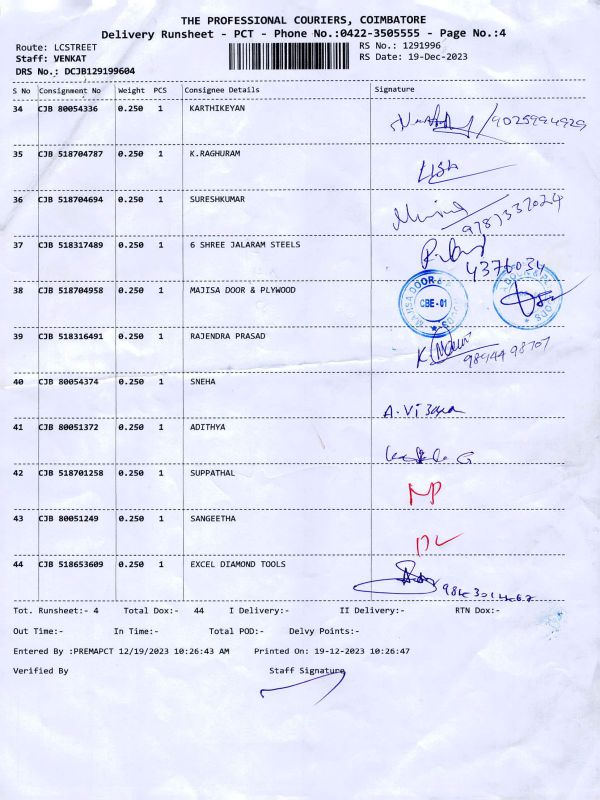 THE PROFESSIONAL COURIERS, COIMBATORE
Delivery Runsheet - PCT - Phone No.:0422-3505555 - Page No.:4
Route: LCSTREET
RS No.: 1291996
Staff: VENKAT
RS Date: 19-Dec-2023
DRS No.: DCJB129199604
S No Consignment No Weight PCS Consignee Details Signature
34 CJB 80054336 0.250 1 KARTHIKEYAN
9025994929
35 CJB 518704787 0.250 1 K.RAGHURAM
36 CJB 518704694 0.250 1 SURESHKUMAR
9787337024
37 CJB 518317489 0.250 1 6 SHREE JALARAM STEELS
4376034
38 CJB 518704958 0.250 1 MAJISA DOOR & PLYWOOD
CBE-01
39 CJB 518316491 0.250 1 RAJENDRA PRASAD
9894498707
40 CJB 80054374 0.250 1 SNEHA
41 CJB 80051372 0.250 1 ADITHYA
42 CJB 518701258 0.250 1 SUPPATHAL
43 CJB 80051249 0.250 1 SANGEETHA
44 CJB 518653609 0.250 1 EXCEL DIAMOND TOOLS
Tot. Runsheet:- 4 Total Dox:- 44 I Delivery:- II Delivery:- RTN Dox:-
Out Time:- In Time:- Total POD:- Delvy Points:-
Entered By :PREMAPCT 12/19/2023 10:26:43 AM Printed On: 19-12-2023 10:26:47
Verified By Staff Signature